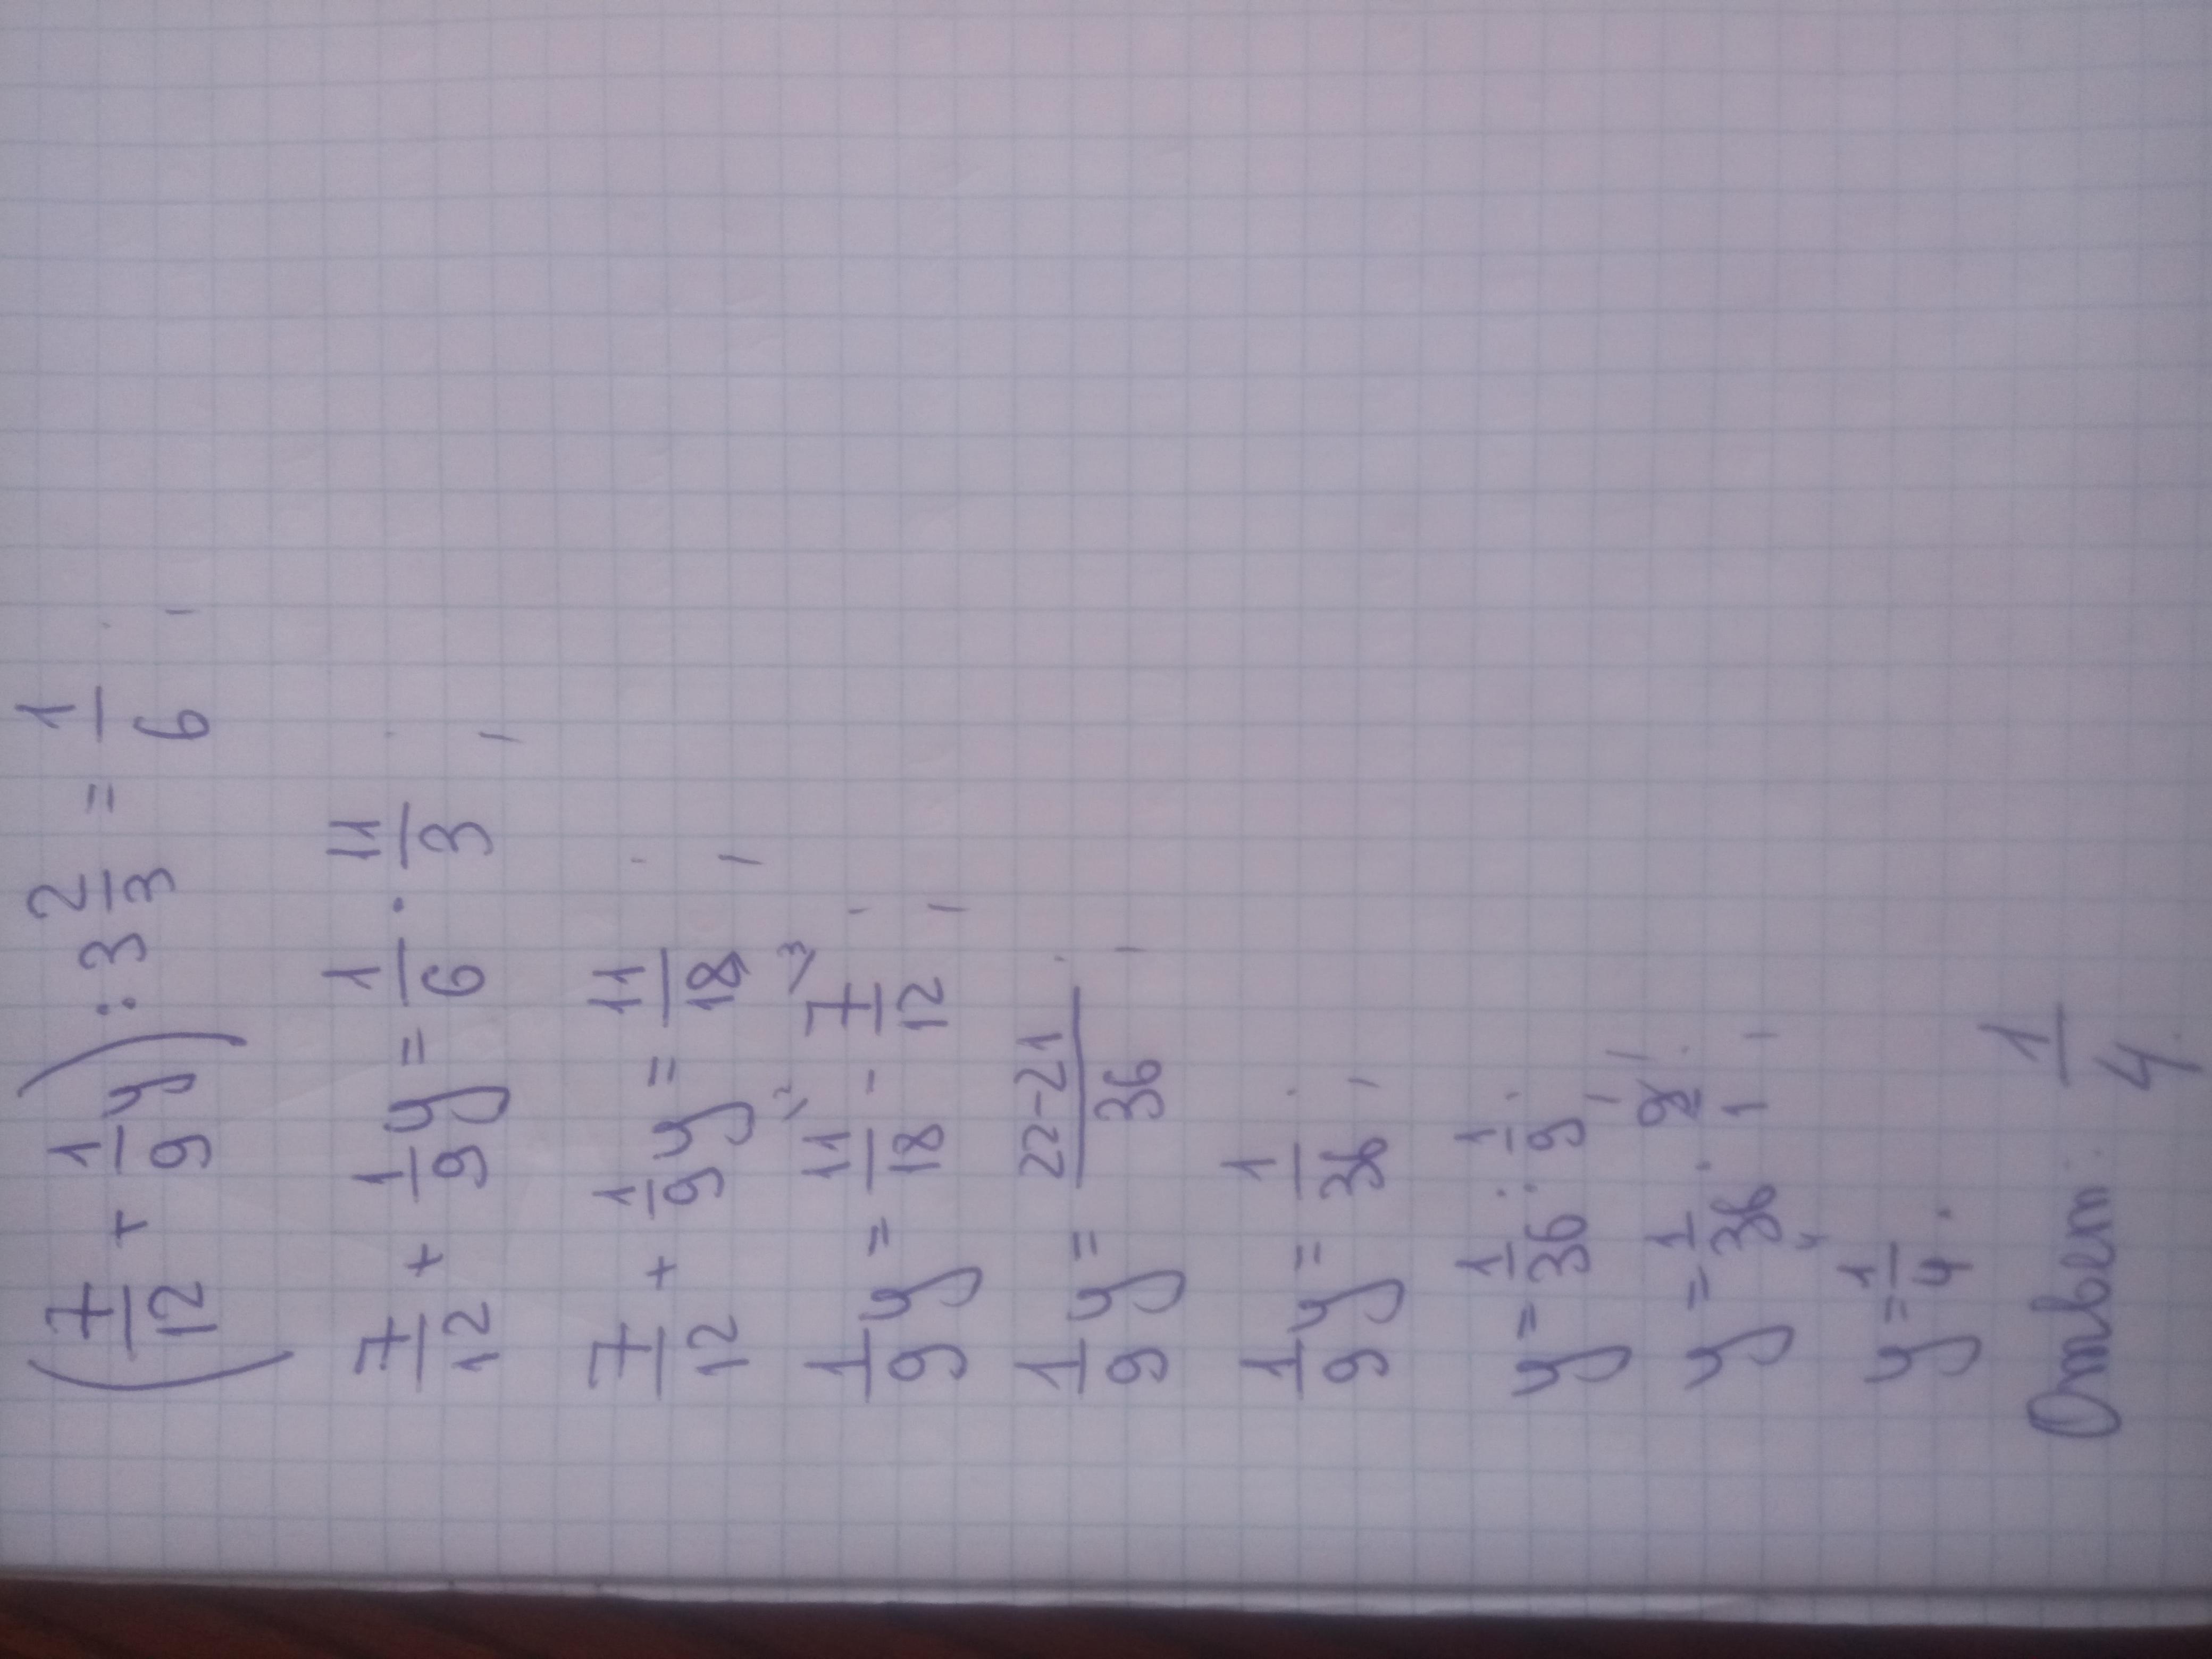 (7/12 + 1/9 y) : 3 2/3 = 1/6;
7/12 + 1/9 y = 1/6 · 11/3;
7/12 + 1/9 y = 11/18;
1/9 y = 11/18 \2 - 7/12 \3;
1/9 y = 22-21/36;
1/9 y = 1/36;
y = 1/36 : 1/9;
y = 1/36 4 · 9 1/1;
y = 1/4.
Ответ: 1/4.